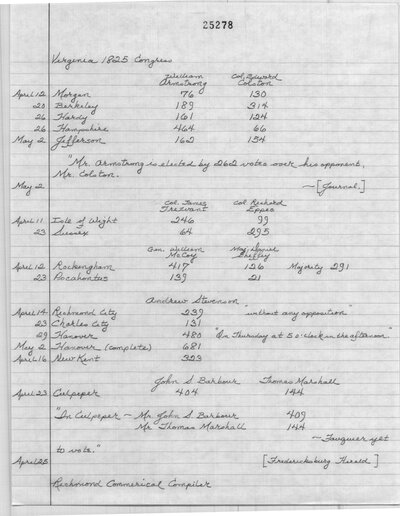 25278
Virginia 1825 Congress
William Armstrong Col. Edward Colston
April 12 Morgan 76 130
20 Berkeley 189 314
26 Hardy 161 124
26 Hampshire 464 66
May 2 Jefferson 162 154
"Mr. Armstrong is elected by 262 votes over his opponent,
Mr. Colston.
May 2 ~ [Journal.]
Col. James Trezvant Col. Richard Eppes
April 11 Isle of Wight 246 99
23 Sussex 64 295
Gen. William McCoy Maj. Daniel Sheffey
April 12 Rockingham 417 126 Majority 291
23 Pocahontas 139 21
Andrew Stevenson
April 14 Richmond City 239 "without any opposition"
23 Charles City 131
29 Hanover 480 "On Thursday at 5 o'clock in the afternoon."
May 2 Hanover (complete) 681
April 16 New Kent 323
John S. Barbour Thomas Marshall
April 23 Culpeper 404 144
"In Culpeper ~ Mr. John S. Barbour 409
Mr Thomas Marshall 144
~ Fauquier yet
to vote."
April 25 [Fredericksburg Herald]
Richmond Commerical Compiler